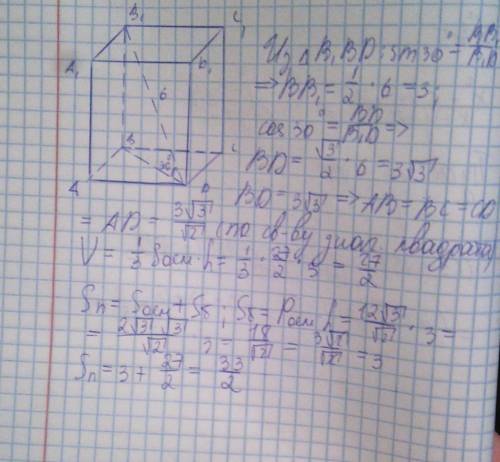 B₁ C₁
A₁ D₁
6
B C
30°
A D
Из △ B₁BD: sin30° = BB₁/B₁D
=> BB₁ = 1/2 · 6 = 3;
cos 30° = BD/B₁D =>
BD = √3/2 · 6 = 3√3
BD = 3√3 => AB = BC = CD
= AD = 3√3/√2 (по св-ву диаг. квадрата)
V = 1/3 Sосн · h = 1/3 · 27/2 · 3 = 27/2
Sп = Sосн + Sб ; Sб = Pосн · h = 12√3/√2 · 3 =
= 2√3 · √3/√2 = 18/√2 = 3√2/√2 = 3
Sп = 3 + 27/2 = 33/2